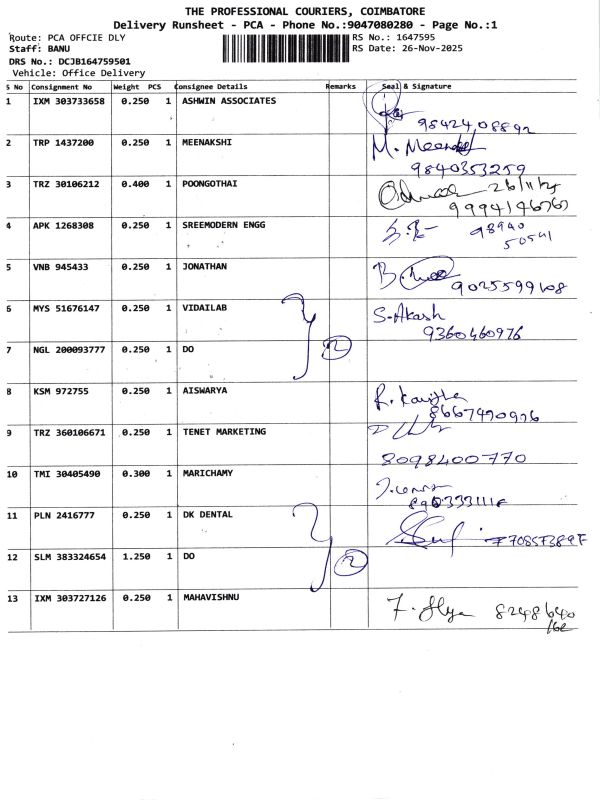 THE PROFESSIONAL COURIERS, COIMBATORE
Delivery Runsheet - PCA - Phone No.:9047080280 - Page No.:1
Route: PCA OFFCIE DLY
RS No.: 1647595
Staff: BANU
RS Date: 26-Nov-2025
DRS No.: DCJB164759501
Vehicle: Office Delivery
S No Consignment No Weight PCS Consignee Details Remarks Seal & Signature
1 IXM 303733658 0.250 1 ASHWIN ASSOCIATES
98424,08892
2 TRP 1437200 0.250 1 MEENAKSHI M. Meenakshi
9840353259
3 TRZ 30106212 0.400 1 POONGOTHAI 26/11/25
9994146767
4 APK 1268308 0.250 1 SREEMODERN ENGG 98940
50541
5 VNB 945433 0.250 1 JONATHAN
9025599108
6 MYS 51676147 0.250 1 VIDAILAB S. Akash
9360460976
7 NGL 200093777 0.250 1 DO 2
8 KSM 972755 0.250 1 AISWARYA
8667490976
9 TRZ 360106671 0.250 1 TENET MARKETING
8098400770
10 TMI 30405490 0.300 1 MARICHAMY
11 PLN 2416777 0.250 1 DK DENTAL
12 SLM 383324654 1.250 1 DO 2
13 IXM 303727126 0.250 1 MAHAVISHNU
8248640